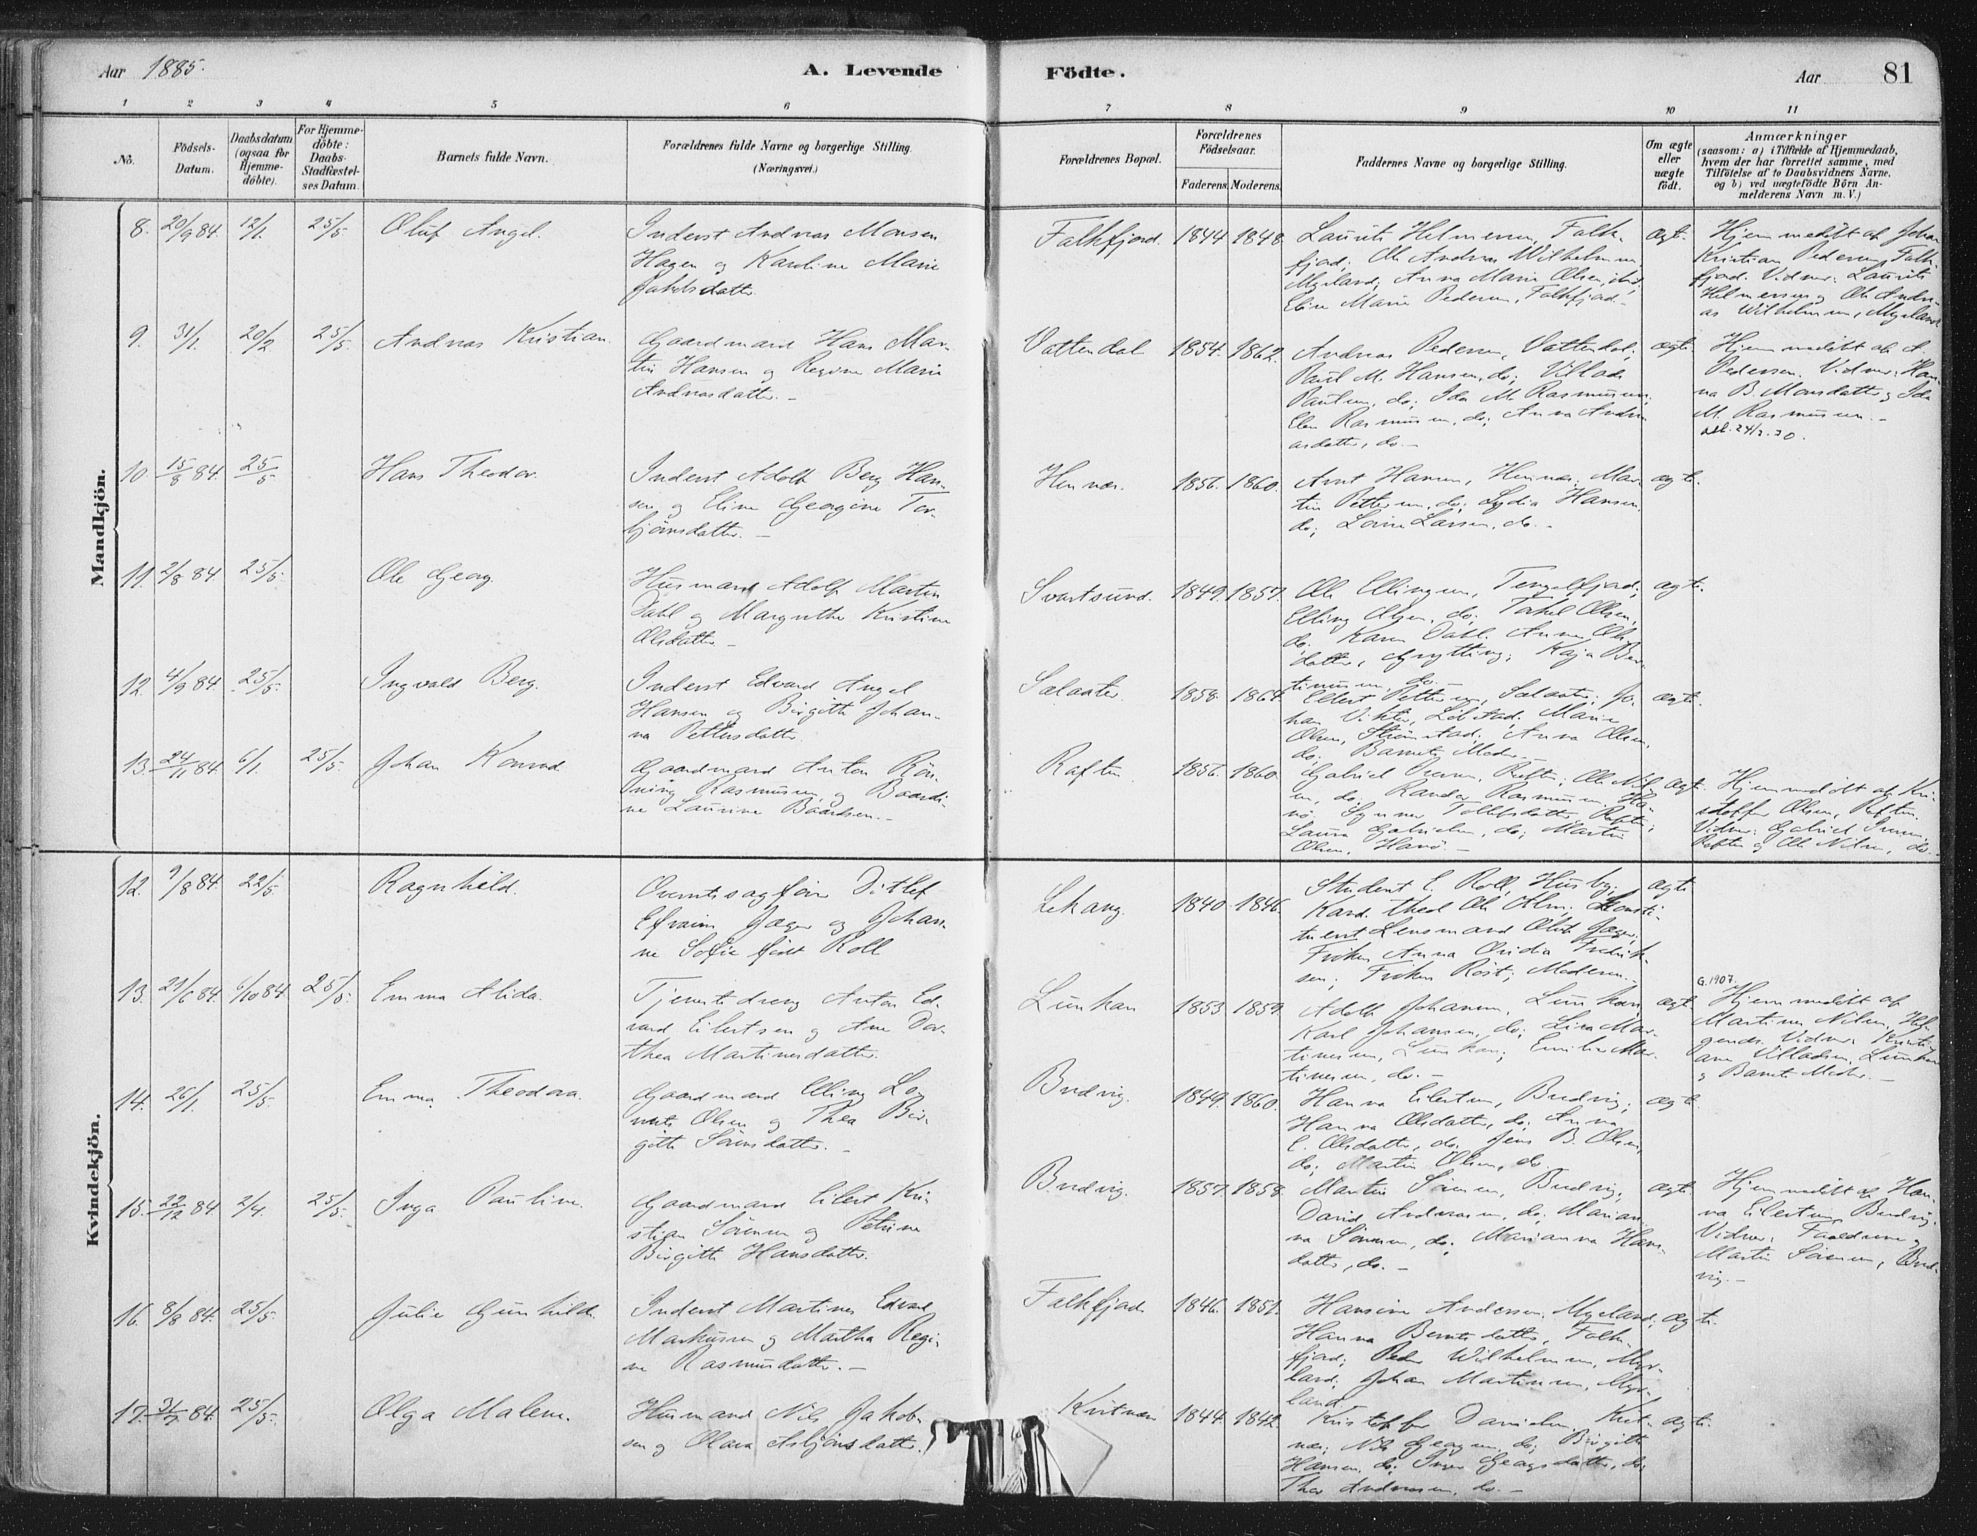 Aar 1885.
A. Levende
Födte.
Aar
81
1 2 3 4 5 6 7 8 9 10 11
No.
Födsels-
Datum.
Daabsdatum
(ogsaa for
Hjemme-
döbte).
For Hjemme-
döbte:
Daabs-
Stadfæstel-
ses Datum.
Barnets fulde Navn.
Forældrenes fulde Navne og borgerlige Stilling
(Næringsvei.)
Forældrenes Bopæl.
Forældrenes
Födselsaar.
Faderens. Moderens.
Faddernes Navne og borgerlige Stilling.
Om ægte
eller
uægte
födt.
Anmærkninger
(saasom: a) i Tilfælde af Hjemmedaab,
hvem der har forrettet samme, med
Tilföielse af to Daabsvidners Navne,
og b) ved uægtefödte Börn An-
melderens Navn m. V.)
Mandkjön.
8. 20/9 84. 12/1. 25/5. Oluf Angel.
Inderst Andreas Monsen
Hagen og Karoline Marie
Jakobsdatter
Falkfjord. 1844 1848
Laurits Helmersen, Falk-
fjord; Ole Andreas Wilhelmsen
Myrland; Anna Marie Olsen, ibid;
Eline Marie Pedersen, Falkfjord.
ægt.
Hjemmedöbt af Johan
Kristian Pedersen, Falk-
fjord. Vidner: Laurits
Helmersen og Ole Andre-
as Wilhelmsen, Myrland
9. 31/1. 20/2 25/5. Andreas Kristian.
Gaardmand Hans Mar-
tin Hansen og Regine Marie
Andreasdatter.
Vattendal 1854. 1862.
Andreas Pedersen, Vattendal;
Paul M. Hansen, do; Villads
Paulsen, do; Ida M. Rasmussen;
Elen Rasmussen, do; Anna Andre-
asdatter, do.
ægte
Hjemmedöbt af A.
Pedersen. Vidner: Han-
na B. Monsdatter og Ida
M. Rasmussen.
10. 15/8 84. 25/5 Hans Theodor.
Inderst Adolf Berg Han-
sen og Eline Georgine Tor-
björnsdatter.
Hennes. 1856. 1860.
Arnt Hansen, Hennes; Mar-
tin Pettersen, do; Lydia Hansen,
do; Lovise Larsen, do.
ægte.
11. 2/8 84. 25/5. Ole Georg
Husmand Adolf Martin
Dahl og Margrethe Kristine
Olsdatter
Svartsund. 1849. 1857.
Ole Ellingsen, Tengelfjord;
Elling Olsen, do; Torkel Olsen,
do; Karen Dahl. Anne Ols-
datter, Grytting; Kaja Ber-
tinussen, do.
ægte.
12. 4/9 84. 25/5. Ingvald Berg.
Inderst Edvard Angel
Hansen og Birgitte Johan-
na Pettersdatter.
Selnater 1858. 1864.
Eilert Pettersen, Selnater; Jo-
han Vikter, Löbstad; Marie
Olsen, Strömstad; Anna Olsen,
do; Barnets Moder
ægte.
13. 24/11 84. 6/1. 25/5. Johan Konrad
Gaardmand Anton Rön-
ning Rasmussen og Baardi-
ne Laurine Baardsen.
Raften 1856. 1860.
Gabriel Iversen, Raften; Ole Nil-
sen, do; Randor Rasmussen, Ha-
nö; Synner Tollefsdatter, Raften;
Laura Gabrielsen, do; Martin
Olsen, Hanö.
ægt.
Hjemmedöbt af Kri-
stoffer Olsen, Raften.
Vidner: Gabriel Iversen,
Raften og Ole Nilsen, do.
Kvindekjön.
12. 9/8 84. 22/5. Ragnhild.
Overretssagförer Ditlef
Efraim Jæger og Johan-
ne Sofie födt Roll
Lekang. 1840. 1846.
Student E. Roll, Husby;
Kand. theol. Ole Alm; Konsti-
tueret Lensmand Oluf Jæger;
Fröken Anna Ovidia Fredrik-
sen; Fröken Röst; Moderen.
ægte
13. 21/6 84. 6/10 84. 25/5. Emma Alida.
Tjenestedreng Anton Ed-
vard Eilertsen og Ane Dor-
thea Martinesdatter.
Lunkan 1853. 1859.
Adolf Johansen, Lunkan;
Karl Johansen, do; Lisa Mar-
tinesen, Lunkan; Emilie Mar-
tinesen, do.
ægt.
G. 1907.
Hjemmedöbt af
Martines Nilsen, Hö-
gendes. Vidner: Kristi-
ane Villadsen, Lunkan
og Barnets Moder.
14. 26/1. 25/5. Emma Theodora.
Gaardmand Elling Lo-
rents Olsen og Thea Bir-
gitte Sörensdatter.
Budvig. 1849. 1860.
Hanna Eilertsen, Budvig;
Hanna Olsdatter, do; Anna
E. Olsdatter, do; Jens B. Olsen,
do; Martin Olsen, do
ægte.
15. 22/12 84. 2/4. 25/5. Inga Pauline.
Gaardmand Eilert Kri-
stian Sörensen og Petrine
Birgitte Hansdatter.
Budvig. 1857. 1858.
Martin Sörensen, Budvig;
David Andreasen, do; Marian-
na Sörensen, do; Marianna Hans-
datter, do.
ægt.
Hjemmedöbt af Han-
na Eilertsen, Budvig.
Vidner: Forældrene og
Martin Sörensen, Bud-
vig.
16. 8/8 84. 25/5. Julie Gunhilde.
Inderst Martines Edvard
Markussen og Martha Regi-
ne Rasmusdatter.
Falkfjord 1846. 1851.
Hansine Andersen, Myrland;
Hanna Berntsdatter, Falk-
fjord; Peder Wilhelmsen, Myr-
land; Johan Martinsen, Myr-
land.
ægte.
17. 31/7 84. 25/5. Olga Malene.
Husmand Nils Jakob-
sen og Olava Asbjörnsdatter.
Kvitnes 1844. 1842.
Kristoffer Danielsen, Kvit-
nes; Nils Georgsen, do; Birgitte
Hansen, do; Inger Georgsdatter, do;
Thea Andreasen, do.
ægte.